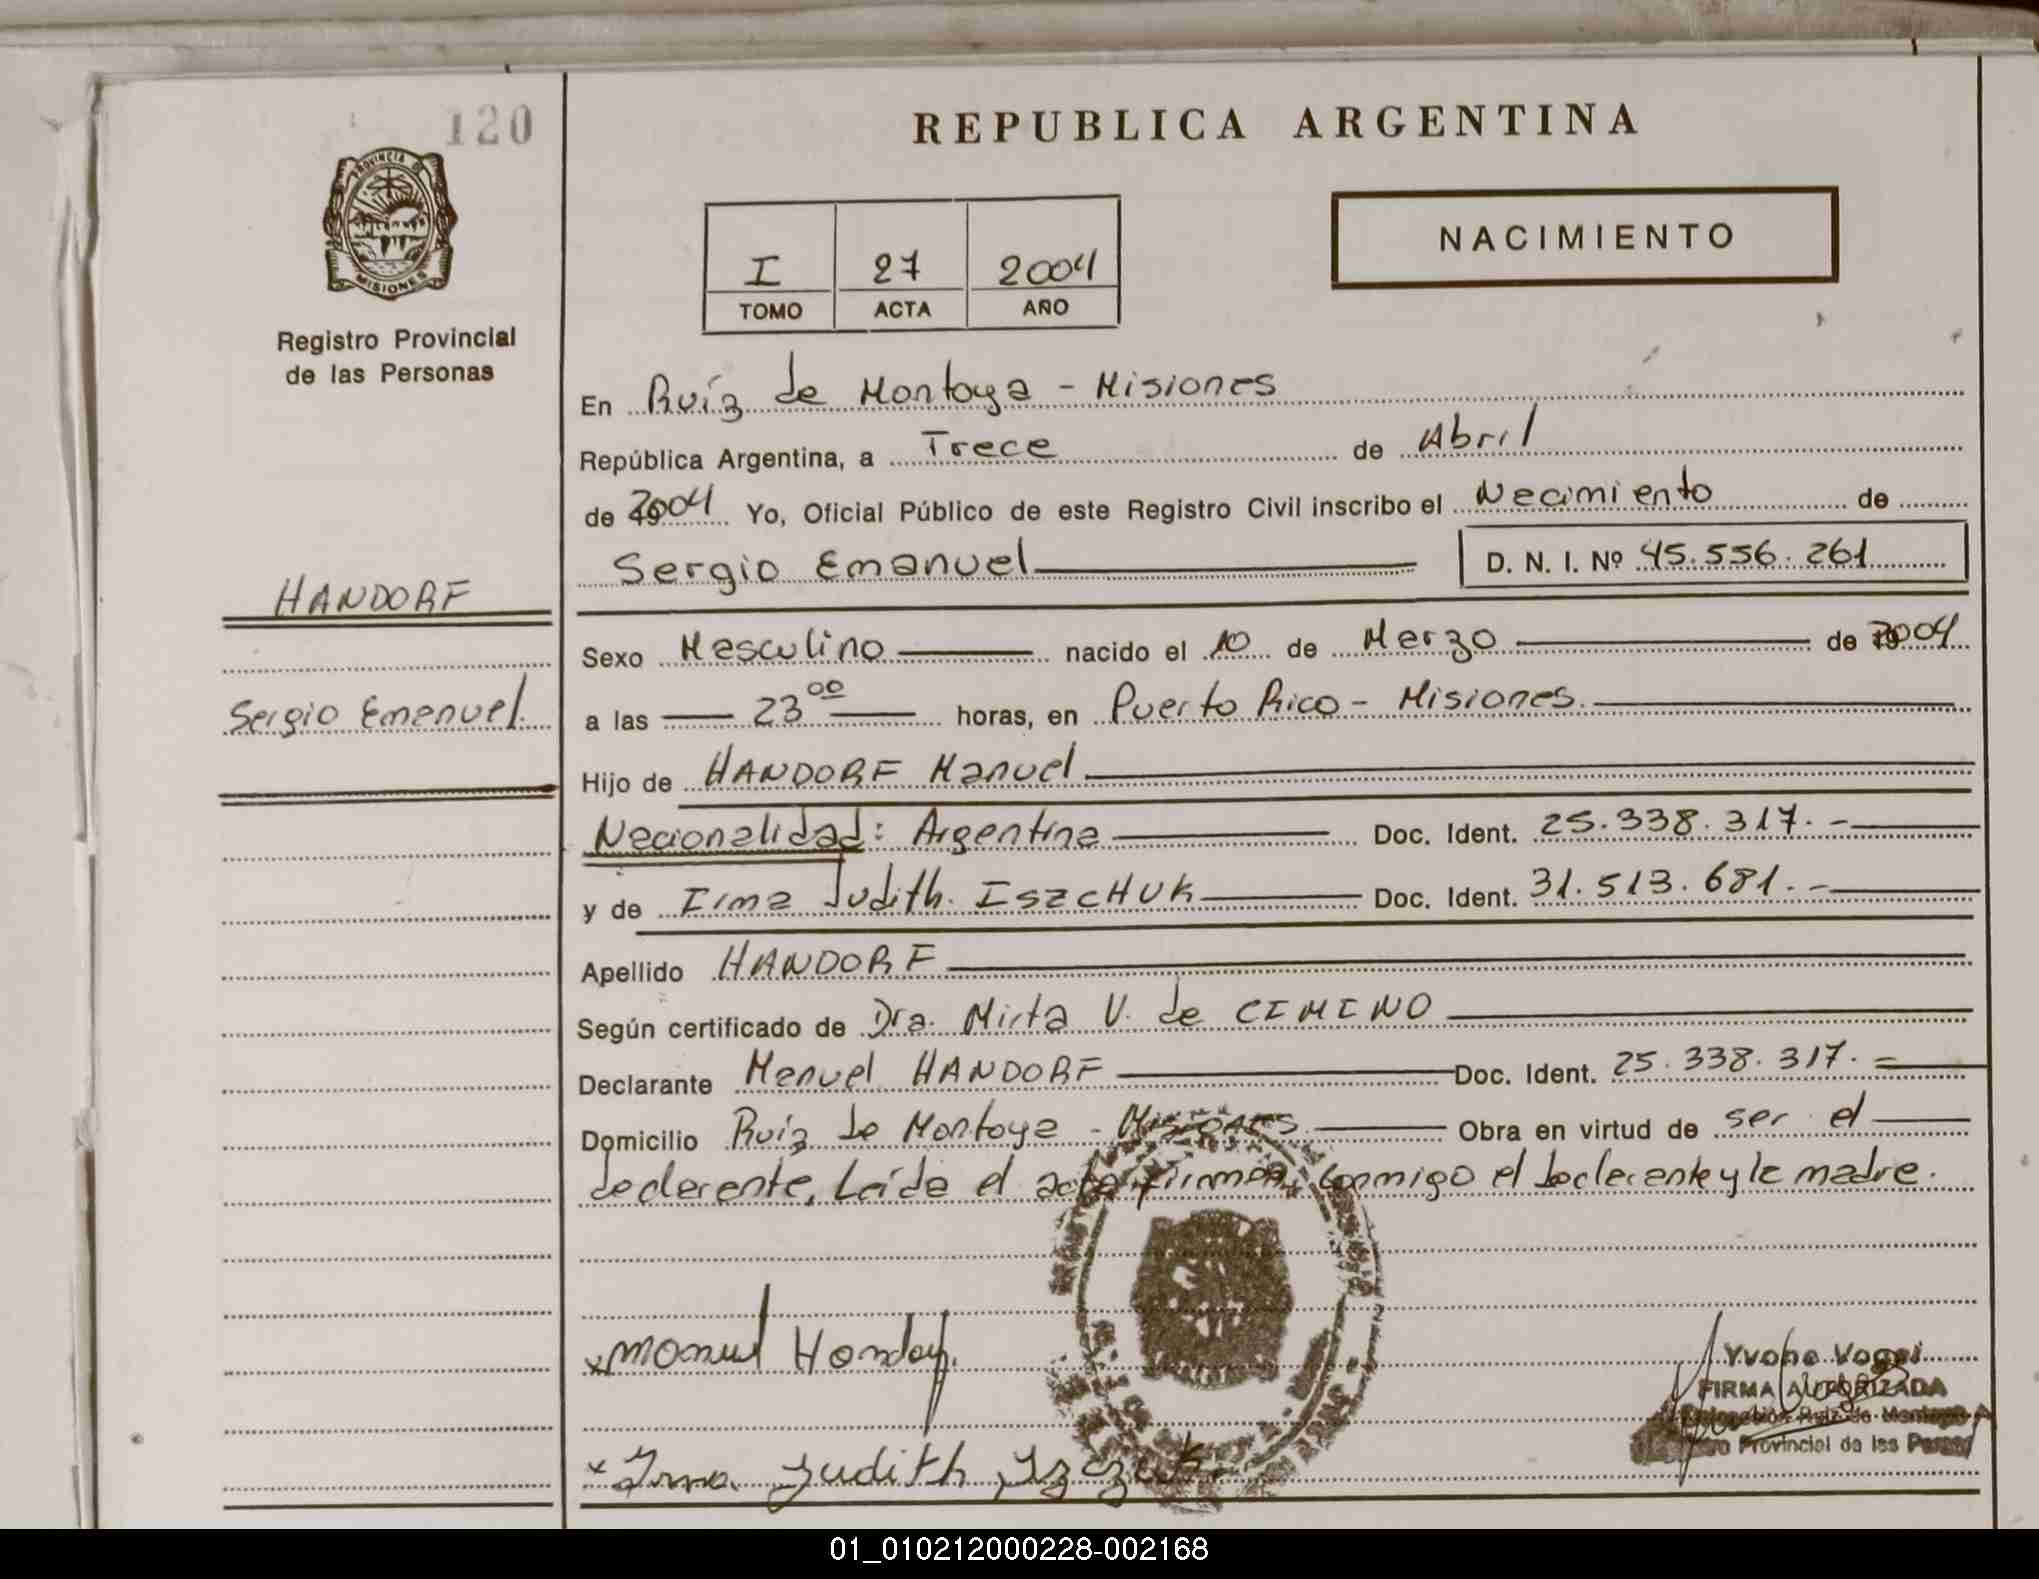 120
PROVINCIA DE
MISIONES
Registro Provincial
de las Personas
HANDORF
Sergio Emanuel.
REPUBLICA ARGENTINA
I 27 2004
TOMO ACTA AÑO
NACIMIENTO
En Ruíz de Montoya - Misiones
República Argentina, a Trece de Abril
de 2004 Yo, Oficial Público de este Registro Civil inscribo el Nacimiento de
Sergio Emanuel D. N. I. Nº 45.556.261
Sexo Masculino nacido el 10 de Marzo de 2004
a las 23 00 horas, en Puerto Rico - Misiones.
Hijo de HANDORF Manuel
Nacionalidad: Argentina Doc. Ident. 25.338.317.-
y de Irma Judith ISZCHUK Doc. Ident. 31.513.681.-
Apellido HANDORF
Según certificado de Dra. Mirta V. de CIMINO
Declarante Manuel HANDORF Doc. Ident. 25.338.317.=
Domicilio Ruíz de Montoya - Misiones. Obra en virtud de ser el
declarante. Leída el acta firman conmigo el declarante y la madre.
x Manuel Handorf.
x Irma Judith
Yvone Vogel
FIRMA AUTORIZADA
Delegación Ruiz de Montoya
Provincial de las
01_010212000228-002168